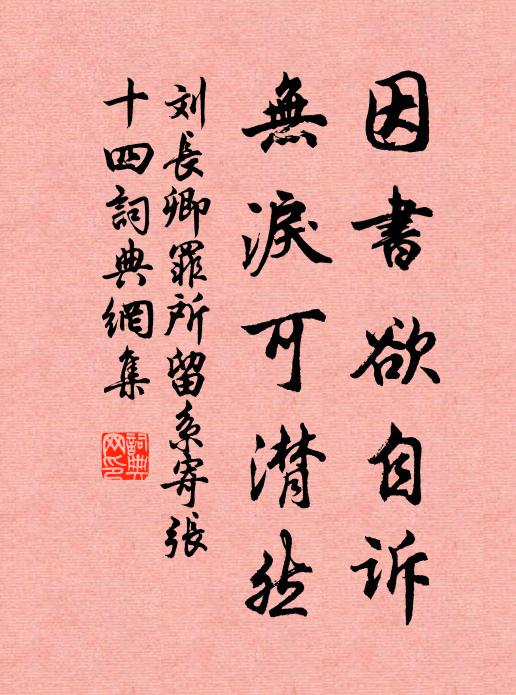 因書欲自訴
無淚可潸然
刘長卿罪所留系寄張
十四詞典網集
詞典網印